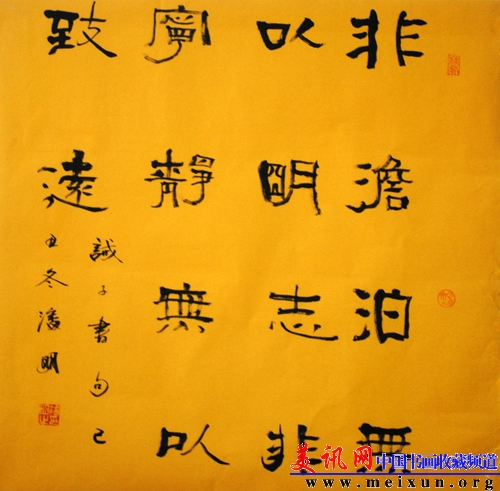 非澹泊無
以明志非
寧靜無以
致遠
誡子書句己
丑冬潘明
美讯网 中国书画收藏频道
www.meixun.org